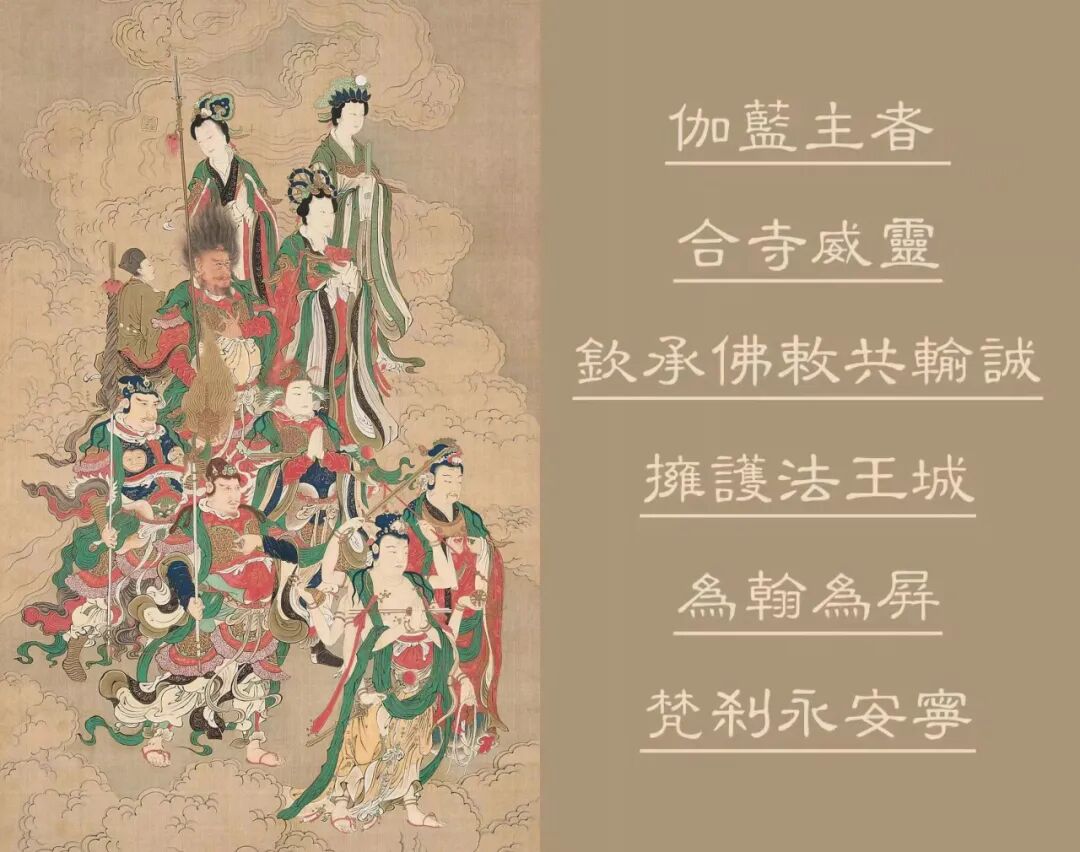 伽藍主者
合寺威靈
欽承佛敕共輸誠
擁護法王城
為翰為屏
梵刹永安寧